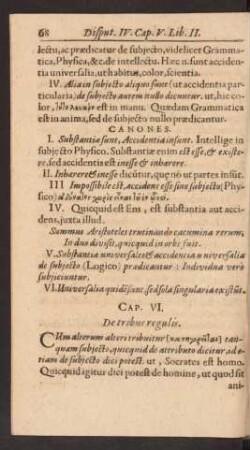 68 Disput. IV. Cap. V. Lib. II.
lectu, ac prædicatur de subjecto, videlicet Gramma-
tica, Physica, &c. de intellectu. Hæc n. sunt acciden-
tia universalia, ut habitus, color, scientia.
IV. Alia in subjecto aliquo sunt (ut accidentia par-
ticularia) de subjecto autem nullo dicuntur. ut, hic co-
lor, est in manu. Quædam Grammatica
est in anima, sed de subjecto nullo prædicantur.
CANONES.
I. Substantia sunt, Accidentia insunt. Intellige in
subjecto Physico. Substantiæ enim est esse, & existe-
re, sed accidentis est inesse & inhærere.
II. Inhærere & inesse dicūtur, quę nō ut partes insūt.
III Impossibile est, accidens esse sine subjecto (Phy-
sico)
IV. Quicquid est Ens, est substantia aut acci-
dens, juxta illud.
Summus Aristoteles trutinando cacumina rerum,
In duo divisit, quicquid in orbe fuit.
V. Substantia universales & accidentia universalia
de subjecto (Logico) prædicantur: Individua verò
subjiciuntur.
VI. Universalia quidē sunt, sed sola singularia existūt.
CAP. VI.
De tribus regulis.
CUm alterum alteri tribuitur tan-
quam subjecto, quicquid de attributo dicitur, id e-
tiam de subjecto dici potest. ut, Socrates est homo.
Quicquid igitur dici potest de homine, ut quod sit
ani-